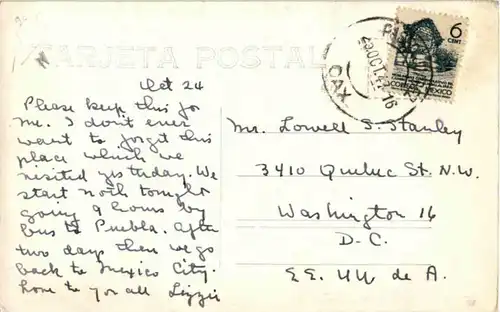 TARJETA POSTAL
6
CENT
OAX
Oct 24
Please keep this for
me. I don't ever
want to forget this
place which we
visited yesterday. We
start north tonight
going 9 hours by
bus to Puebla. After
two days then we go
back to Mexico City.
Love to you all Lizzie
Mr. Lowell S. Stanley
3410 Quebec St. N.W.
Washington 16
D.C.
EE. UU de A.